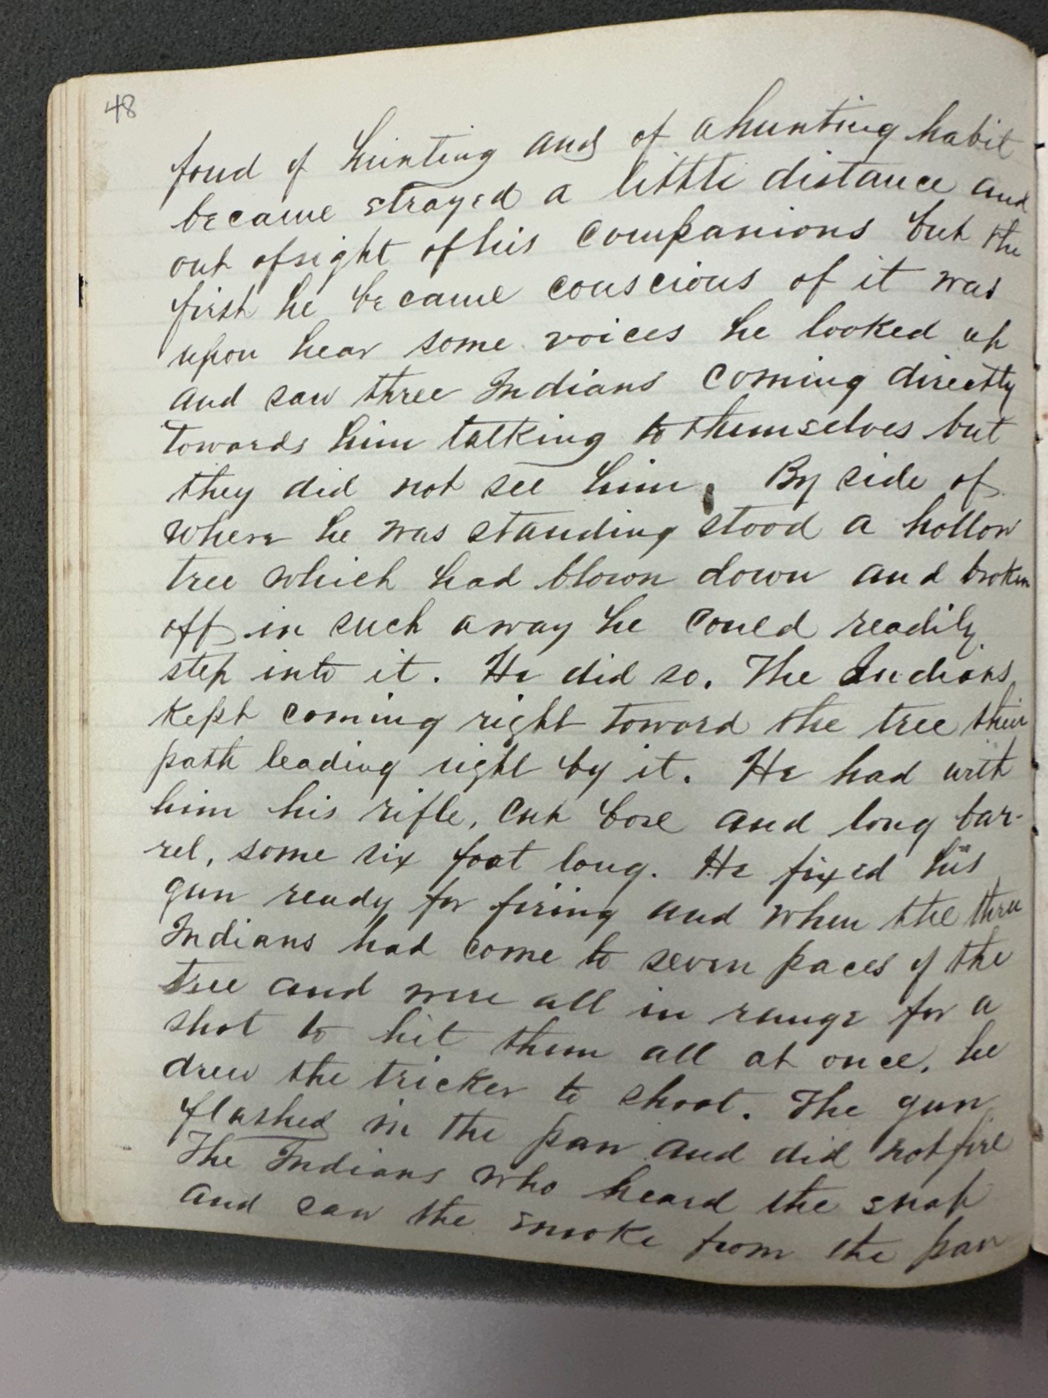 48
fond of hunting and of a hunting habit
became strayed a little distance and
out of sight of his companions but the
first he became conscious of it was
upon hear some voices he looked up
and saw three Indians coming directly
towards him talking to themselves but
they did not see him. By side of
where he was standing stood a hollow
tree which had blown down and broken
off in such away he could readily
step into it. He did so. The Indians
kept coming right toward the tree their
path leading right by it. He had with
him his rifle, cut bore and long bar-
rel, some six foot long. He fixed his
gun ready for firing and when the three
Indians had come to seven paces of the
tree and were all in range for a
shot to hit them all at once, he
drew the tricker to shoot. The gun
flashed in the pan and did not fire
The Indians who heard the snap
and saw the smoke from the pan